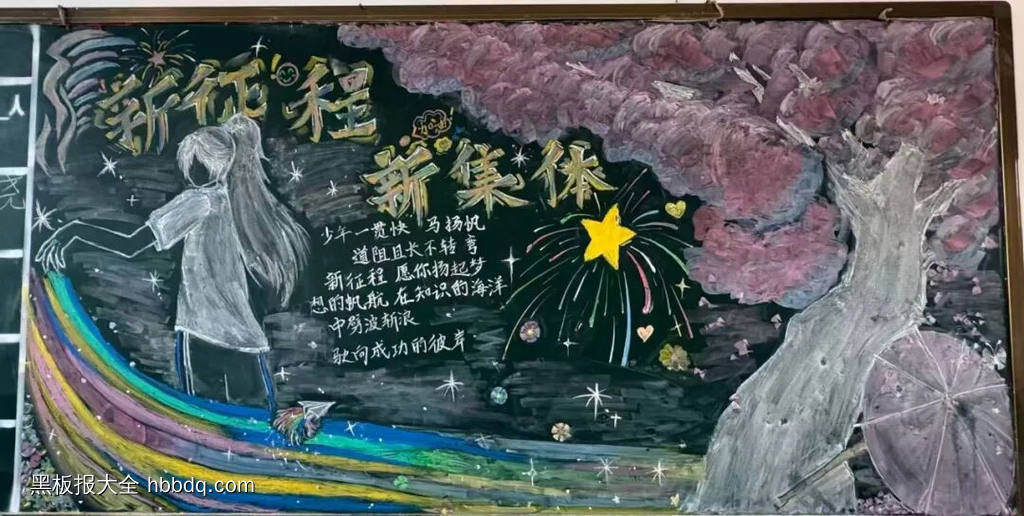 新征程
新集体
少年一贯快马扬帆
道阻且长不转弯
新征程 愿你扬起梦
想的帆航 在知识的海洋
中劈波斩浪
驶向成功的彼岸
黑板报大全 hbbdq.com